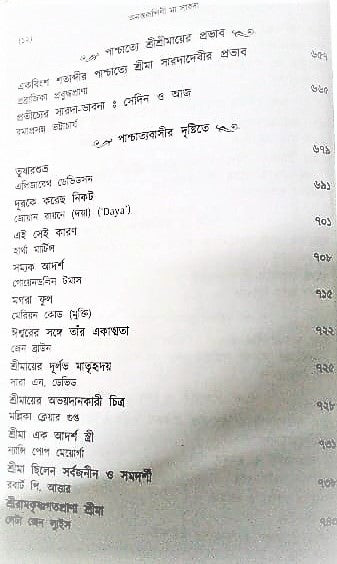 (১২)
শতরূপে মা সারদা
পাশ্চাত্যে শ্রীশ্রীমায়ের প্রভাব
একবিংশ শতাব্দীর পাশ্চাত্যে শ্রীমা সারদাদেবীর প্রভাব ৬৫৭
প্রব্রাজিকা প্রবুদ্ধপ্রাণা
প্রতীচ্যের সারদা-ভাবনা : সেদিন ও আজ ৬৬৫
রমাপ্রসন্ন ভট্টাচার্য
পাশ্চাত্যবাসীর দৃষ্টিতে
তুষারশুভ্র ৬৭৯
এলিজাবেথ ডেভিডসন
দূরকে করেছ নিকট ৬৯১
জোয়ান রায়নে (দয়া) ('Daya')
এই সেই কারণ ৭০১
হার্থা মার্টিন্স
সম্যক আদর্শ ৭০৮
গোয়েনডলিন টমাস
মগরা ফুল ৭১৫
মেরিয়ন কোড (মুক্তি)
ঈশ্বরের সঙ্গে তাঁর একাত্মতা ৭২২
জেন ব্রাউন
শ্রীমায়ের দুর্লভ মাতৃহৃদয় ৭২৫
সারা এন. ডেভিড
শ্রীমায়ের অভয়দানকারী চিত্র ৭২৮
মল্লিকা ক্লেয়ার গুপ্ত
শ্রীমা এক আদর্শ স্ত্রী ৭৩১
ন্যান্সি পোপ মেয়োর্গা
শ্রীমা ছিলেন সর্বজনীন ও সমদর্শী ৭৩৮
রবার্ট পি. আত্তার
শ্রীরামকৃষ্ণগতপ্রাণা শ্রীমা ৭৪০
লেটা জেন ল্যুইস